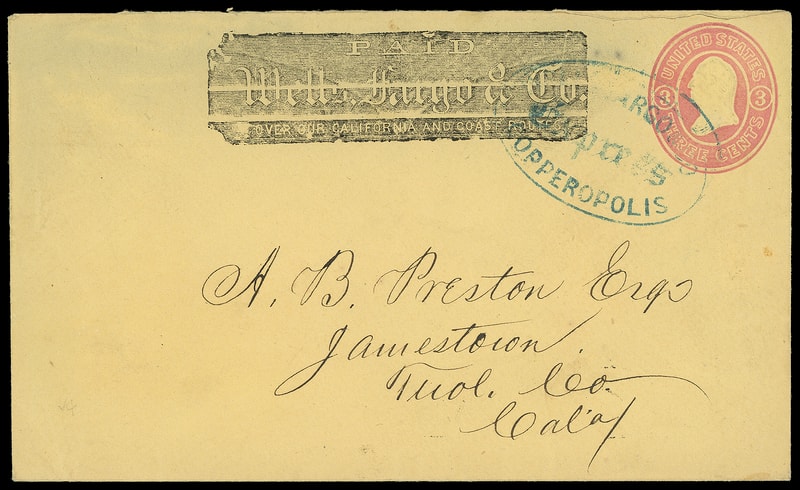 PAID
Wells, Fargo & Co.
OVER OUR CALIFORNIA AND COAST ROUTES
UNITED STATES
3 3
THREE CENTS
COPPEROPOLIS
A. B. Preston Esqr
Jamestown.
Tuol. Co.
Cala